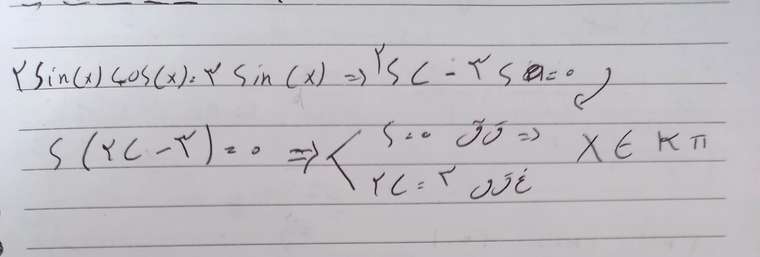 ۲ Sin(x) Cos(x) = ۳ Sin(x) => ۲SC - ۳S = ۰
S(۲C - ۳) = ۰ => S = ۰ ق ق => X ∈ Kπ
۲C = ۳ غ ق ق